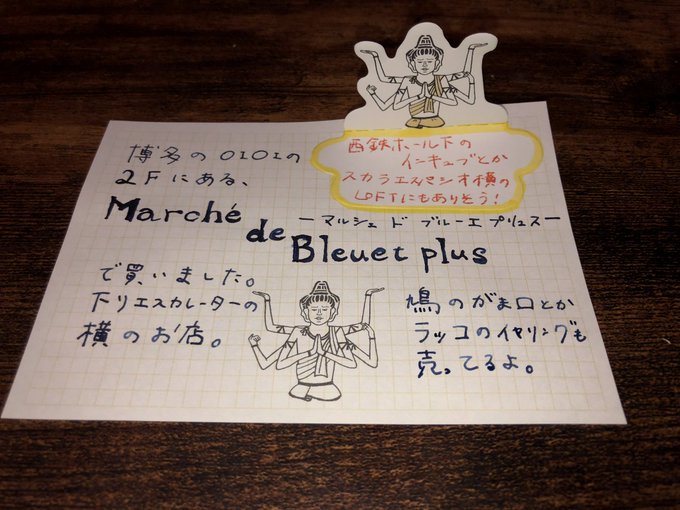 西鉄ホール下の
インキュブとか
スカラエスパシオ横の
LOFTにもありそう!
博多のOIOIの
2Fにある、
Marché
de
Bleuet plus
ーマルシェ ド ブルーエ プリュスー
で買いました。
下りエスカレーターの
横のお店。
鳩のがま口とか
ラッコのイヤリングも
売ってるよ。